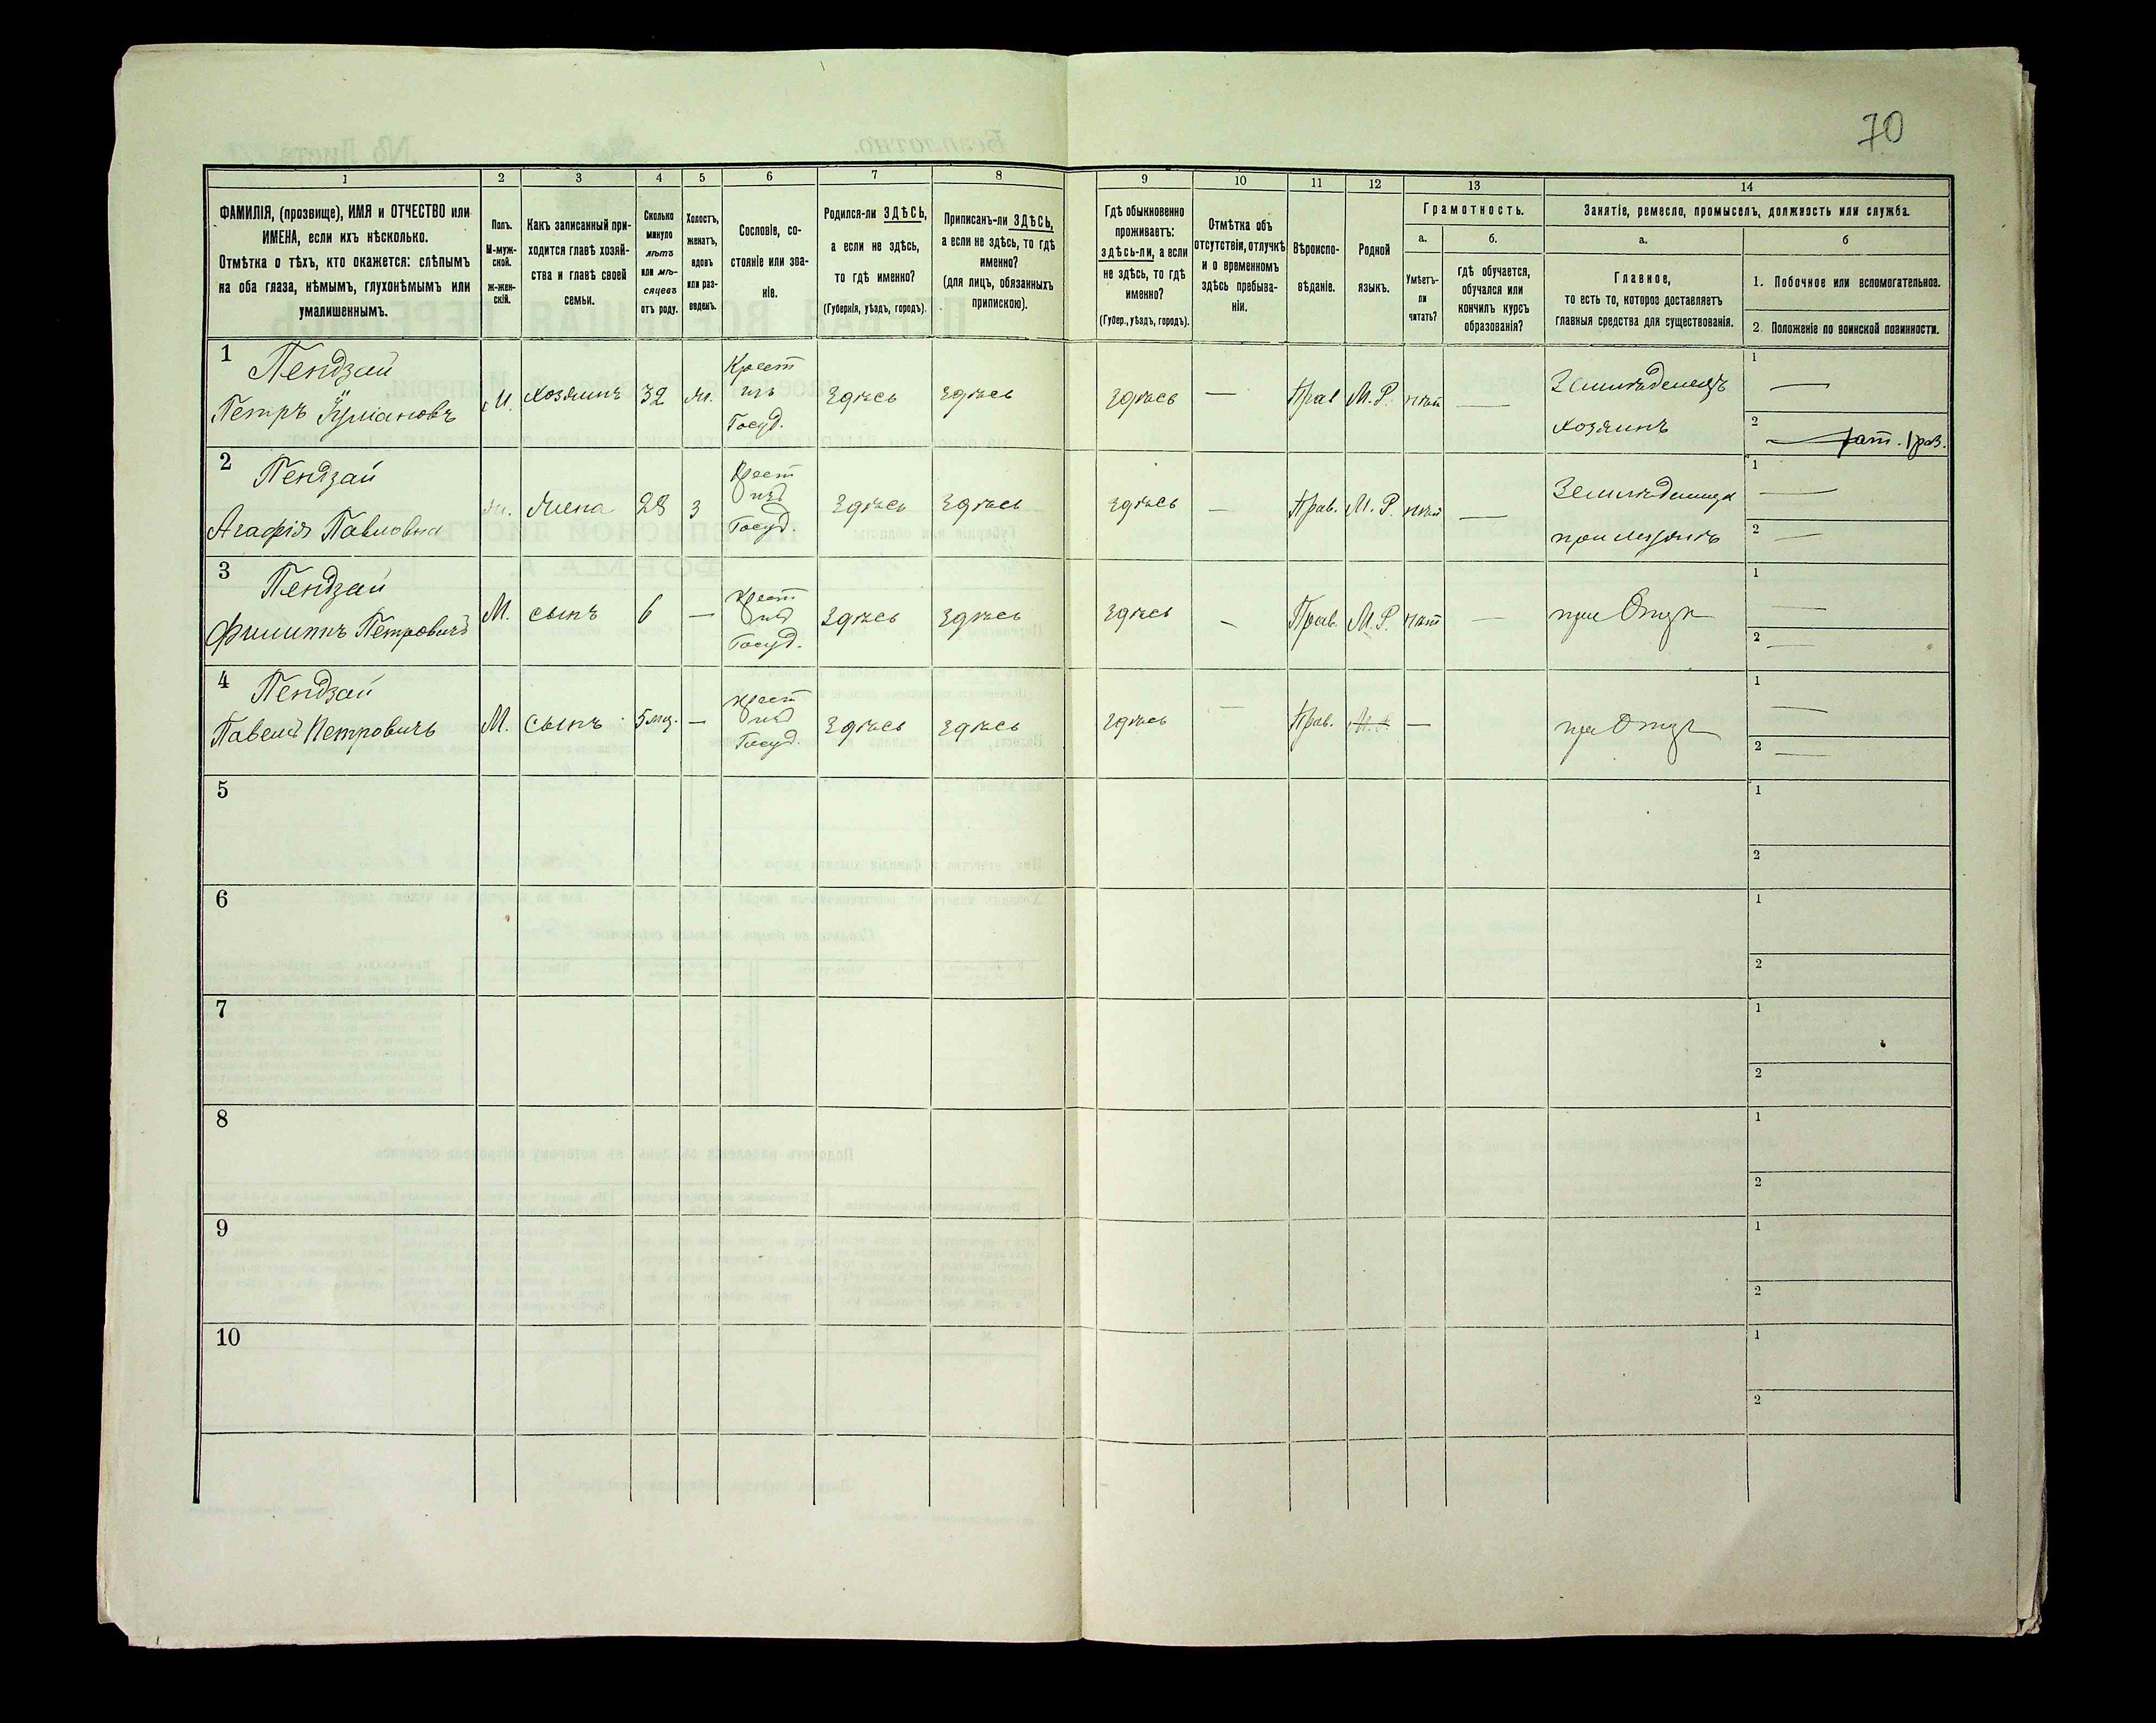 70
1 2 3 4 5 6 7 8 9 10 11 12 13 14
ФАМИЛІЯ, (прозвище), ИМЯ и ОТЧЕСТВО или
ИМЕНА, если ихъ нѣсколько.
Отмѣтка о тѣхъ, кто окажется: слѣпымъ
на оба глаза, нѣмымъ, глухонѣмымъ или
умалишеннымъ.
Полъ.
М-муж-
ской.
ж-жен-
скій.
Какъ записанный при-
ходится главѣ хозяй-
ства и главѣ своей
семьи.
Сколько
минуло
лѣтъ
или мѣ-
сяцевъ
отъ роду.
Холостъ,
женатъ,
вдовъ
или раз-
веденъ.
Сословіе, со-
стояніе или зва-
ніе.
Родился-ли ЗДѢСЬ,
а если не здѣсь,
то гдѣ именно?
(Губернія, уѣздъ, городъ).
Приписанъ-ли ЗДѢСЬ,
а если не здѣсь, то гдѣ
именно?
(для лицъ, обязанныхъ
припискою).
Гдѣ обыкновенно
проживаетъ:
здѣсь-ли, а если
не здѣсь, то гдѣ
именно?
(Губер., уѣздъ, городъ).
Отмѣтка объ
отсутствіи, отлучкѣ
и о временномъ
здѣсь пребыва-
ніи.
Вѣроиспо-
вѣданіе.
Родной
языкъ.
Грамотность.
а.
Умѣетъ-
ли
читать?
б.
гдѣ обучается,
обучался или
кончилъ курсъ
образованія?
Занятіе, ремесло, промыселъ, должность или служба.
а.
Главное,
то есть то, которое доставляетъ
главныя средства для существованія.
б
1. Побочное или вспомогательное.
2. Положеніе по воинской повинности.
1 Пендзай
Петръ
М. хозяинъ 32 ж.
Крест
изъ
Госуд.
Здѣсь Здѣсь Здѣсь — Прав М.Р. нѣт —
Земледѣлецъ
хозяинъ
1 —
2 — рат. 1 раз.
2 Пендзай
Агафія Павловна
ж. жена 28 з
Крест
изъ
Госуд.
Здѣсь Здѣсь Здѣсь — Прав. М.Р. нѣт —
1 —
2 —
3 Пендзай
Филиппъ Петровичъ
М. сынъ 6 —
Крест
изъ
Госуд.
Здѣсь Здѣсь Здѣсь — Прав. М.Р. нѣт —
при Отцѣ
1 —
2 —
4 Пендзай
Павелъ Петровичъ
М. сынъ 5 мѣс. —
Крест
изъ
Госуд.
Здѣсь Здѣсь Здѣсь — Прав. М.Р. —
при Отцѣ
1 —
2 —
5
1
2
6
1
2
7
1
2
8
1
2
9
1
2
10
1
2